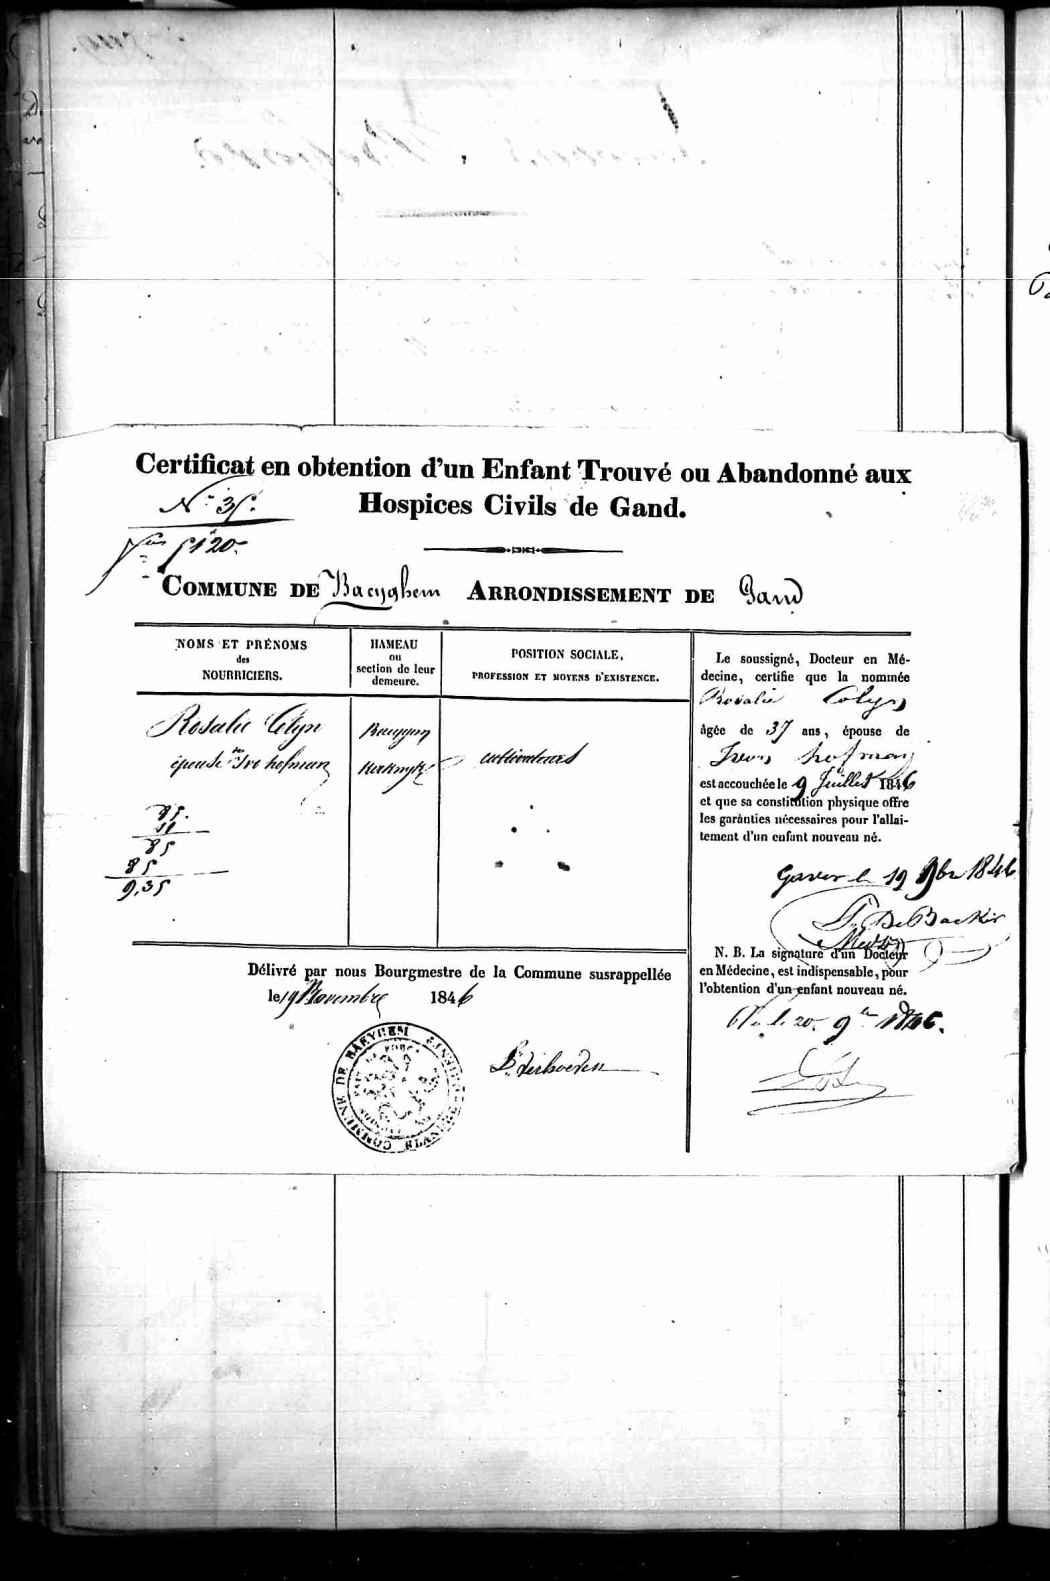 Certificat en obtention d'un Enfant Trouvé ou Abandonné aux
Hospices Civils de Gand.
N° 35.
5120
COMMUNE DE Baeyghem ARRONDISSEMENT DE Gand
NOMS ET PRÉNOMS
des
NOURRICIERS.
HAMEAU
ou
section de leur
demeure.
POSITION SOCIALE,
PROFESSION ET MOYENS D'EXISTENCE.
Rosalie Colyn
épouse de Ivo hofman
cultivateurs
85.
11
85
85
9,35
Le soussigné, Docteur en Mé-
decine, certifie que la nommée
Rosalie Colyn
âgée de 37 ans, épouse de
Ivon hofman
est accouchée le 9 Juillet 1846
et que sa constitution physique offre
les garanties nécessaires pour l'allai-
tement d'un enfant nouveau né.
Gavre le 19 9bre 1846
De Backer
N. B. La signature d'un Docteur
en Médecine, est indispensable, pour
l'obtention d'un enfant nouveau né.
Vu le 20 9bre 1846.
Délivré par nous Bourgmestre de la Commune susrappellée
le 19 Novembre 1846
COMMUNE DE BAEYGEM